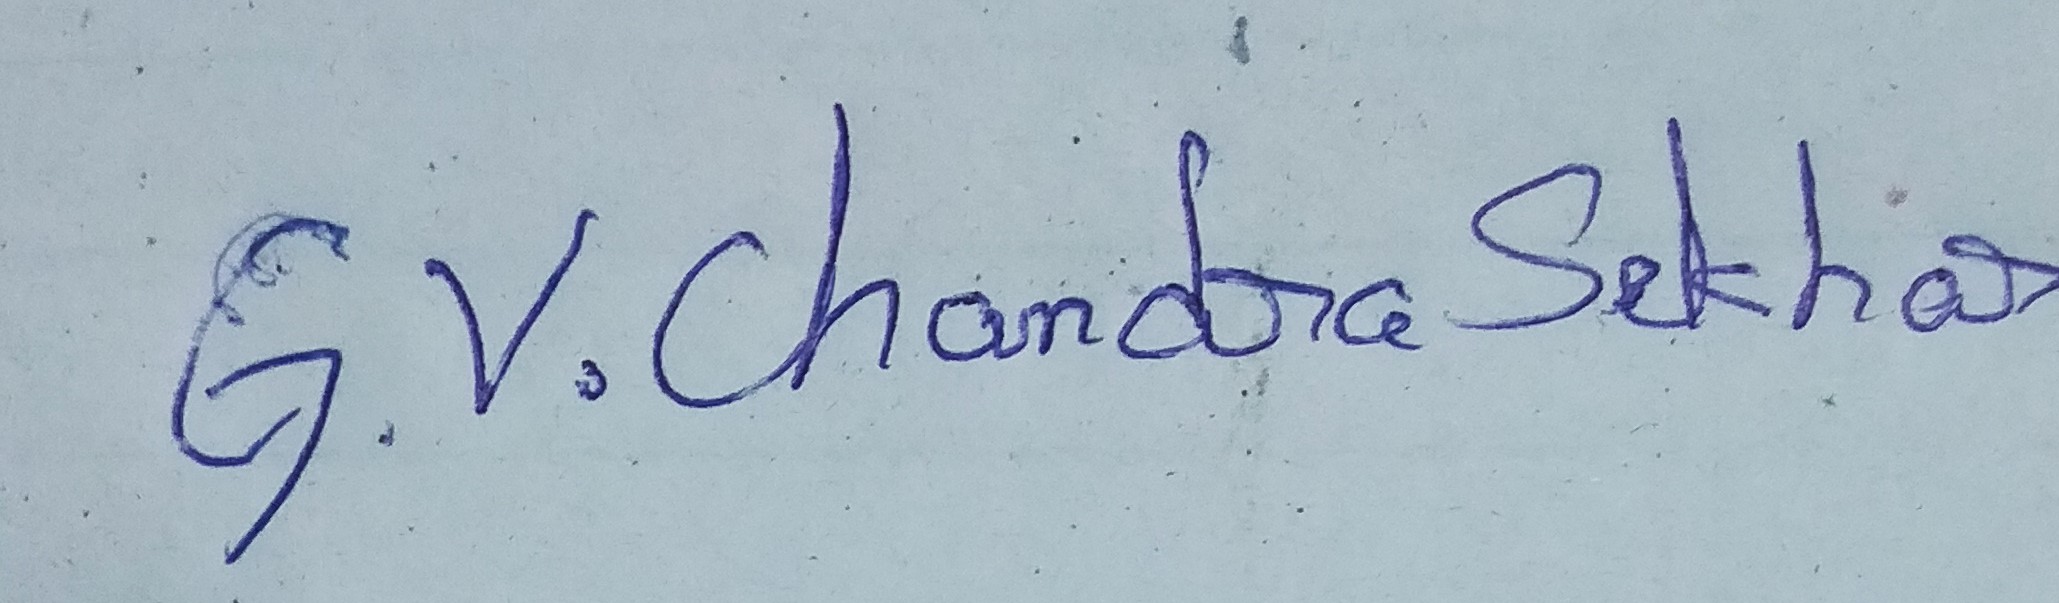 G.V. Chandra Sekhar